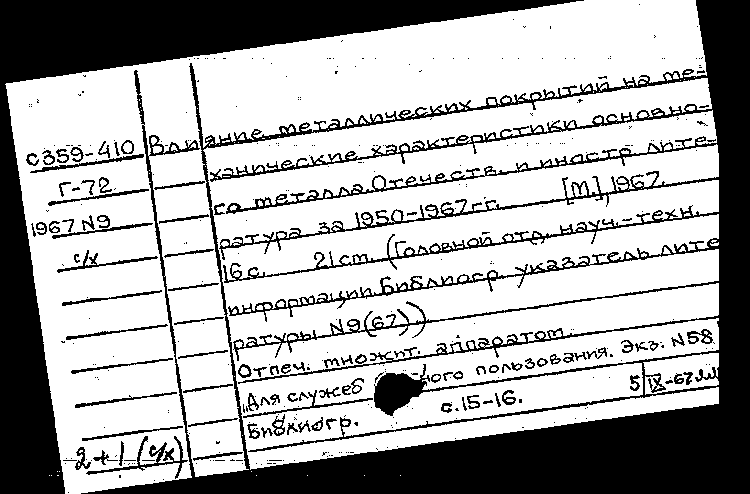 С359-410
Г-72
1967 N9
с/х
2+1 (с/х)
Влияние металлических покрытий на ме-
ханические характеристики основно-
го металла. Отечеств. и иностр. лите-
ратура за 1950-1967 гг. [М.], 1967.
16 с. 21 см. (Головной отд. науч.-техн.
информации. Библиогр. указатель лите
ратуры N9(67))
Отпеч. множит. аппаратом.
„Для служеб ного пользования. Экз. N58
Библиогр. с. 15-16.
5 IX-67